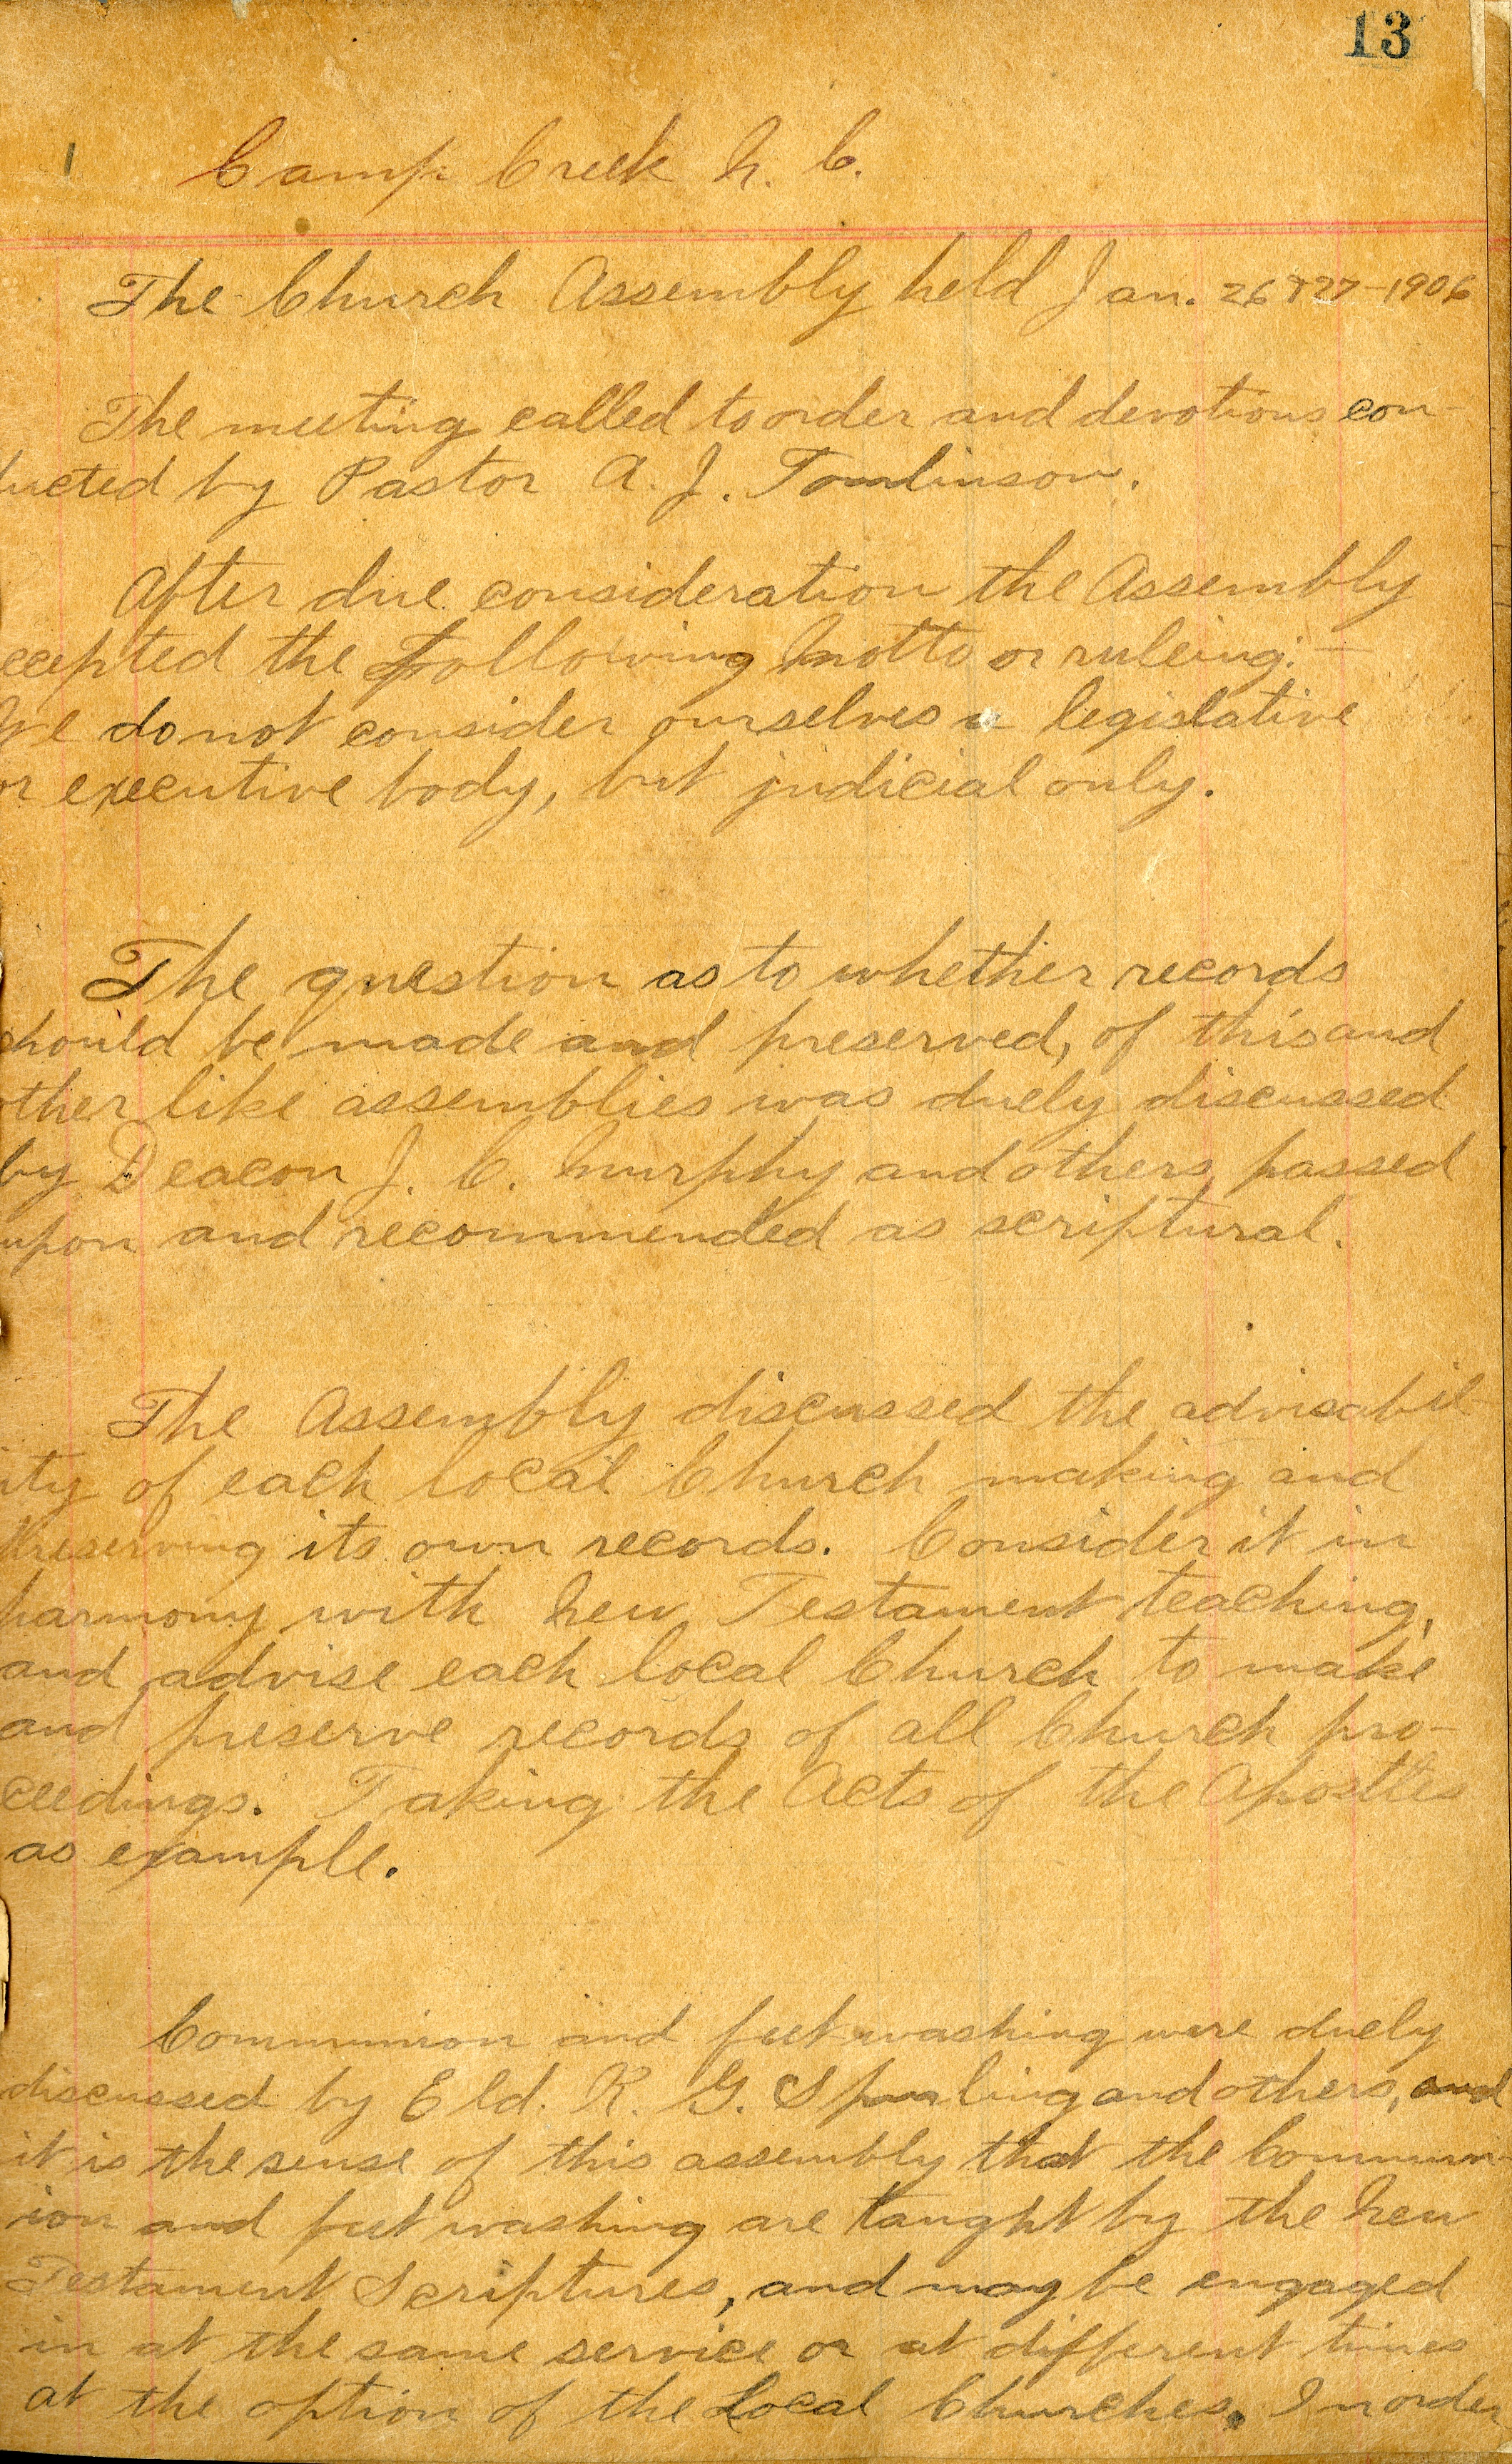 13
Camp Creek N. C.
The Church Assembly held Jan. 26 & 27-1906
The meeting called to order and devotions con-
ducted by Pastor A. J. Tomlinson.
After due consideration the Assembly
ccepted the following Motto or ruleing: —
We do not consider ourselves a legislative
or executive body, but judicial only.
The question as to whether records
should be made and preserved, of this and
other like assemblies was duely discussed
by Deacon J. C. Murphy and others, passed
upon and recommended as scriptural.
The Assembly discussed the advisabil-
ity of each local Church making and
preserving its own records. Consider it in
harmony with New Testament teaching,
and advise each local Church to make
and preserve records of all Church pro-
ceedings. Taking the Acts of the Apostles
as example.
Communion and feet washing were duely
discussed by Eld. R. G. Spurling and others, and
it is the sense of this assembly that the Commun-
ion and feet washing are taught by the New
Testament Scriptures, and may be engaged
in at the same service or at different times
at the option of the Local Churches. In order